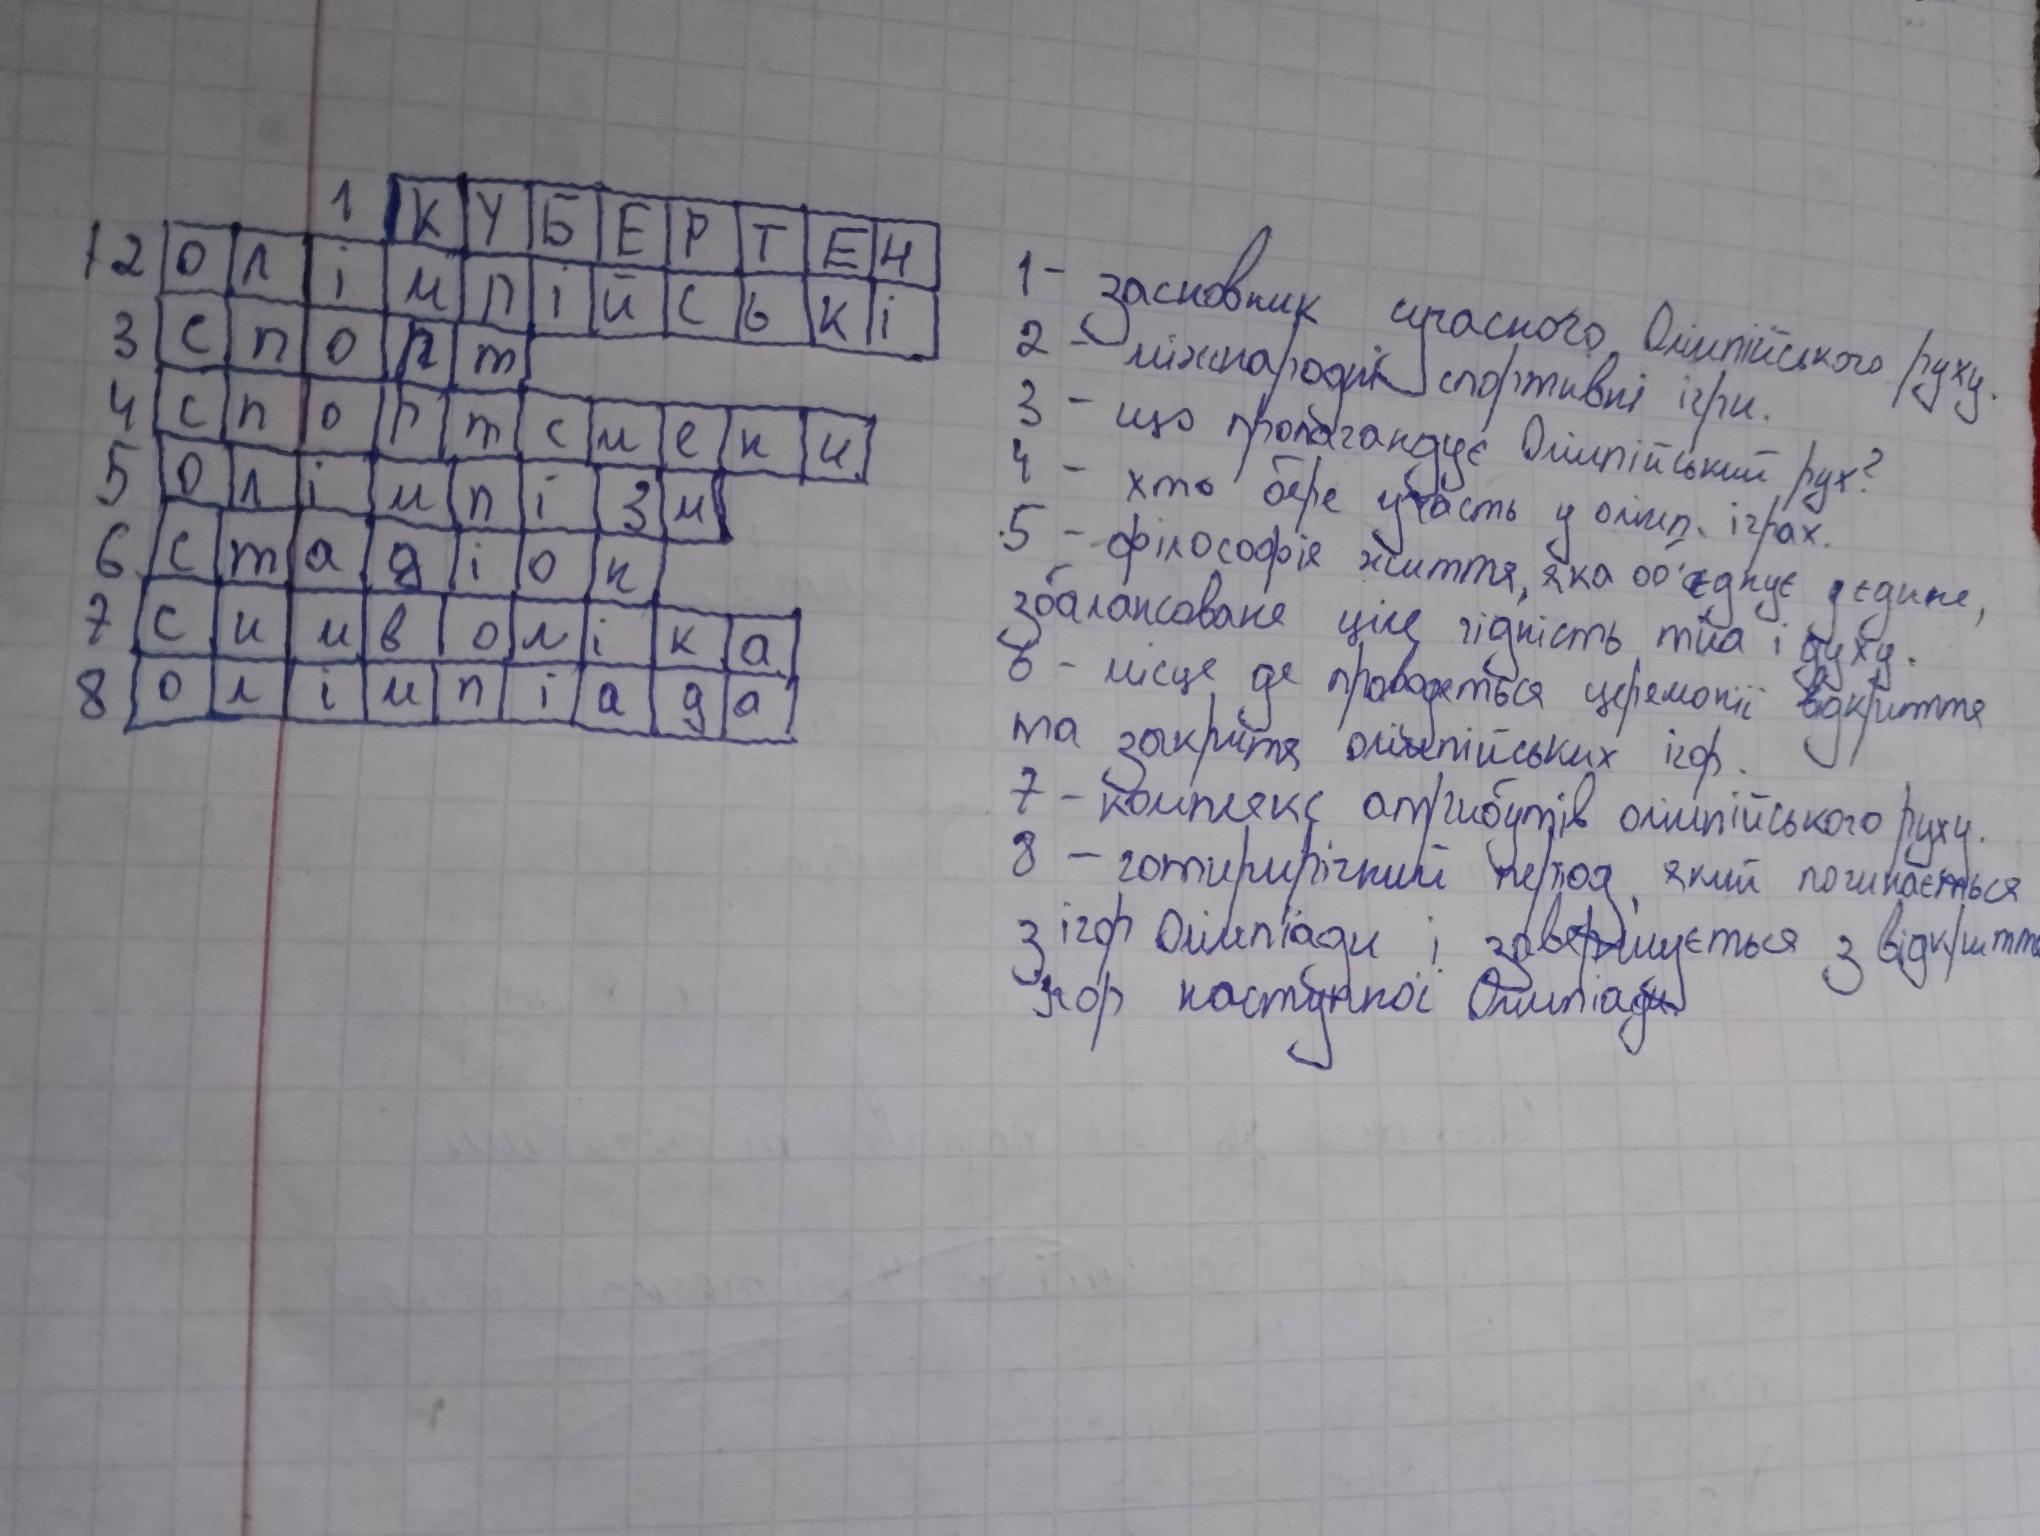 1 КУБЕРТЕН
12 олімпійські
3 спорт
4 спортсмени
5 олімпізм
6 стадіон
7 символіка
8 олімпіада
1 - засновник сучасного Олімпійського руху.
2 - міжнародні спортивні ігри.
3 - що пропагандує Олімпійський рух?
4 - хто бере участь у олімп. іграх.
5 - філософія життя, яка об'єднує у єдине,
збалансоване ціле гідність тіла і духу.
6 - місце де проводяться церемонії відкриття
та закриття олімпійських ігор.
7 - комплекс атрибутів олімпійського руху.
8 - чотирирічний період, який починається
з ігор Олімпіади і завершується з відкриттям
ігор наступної Олімпіади.